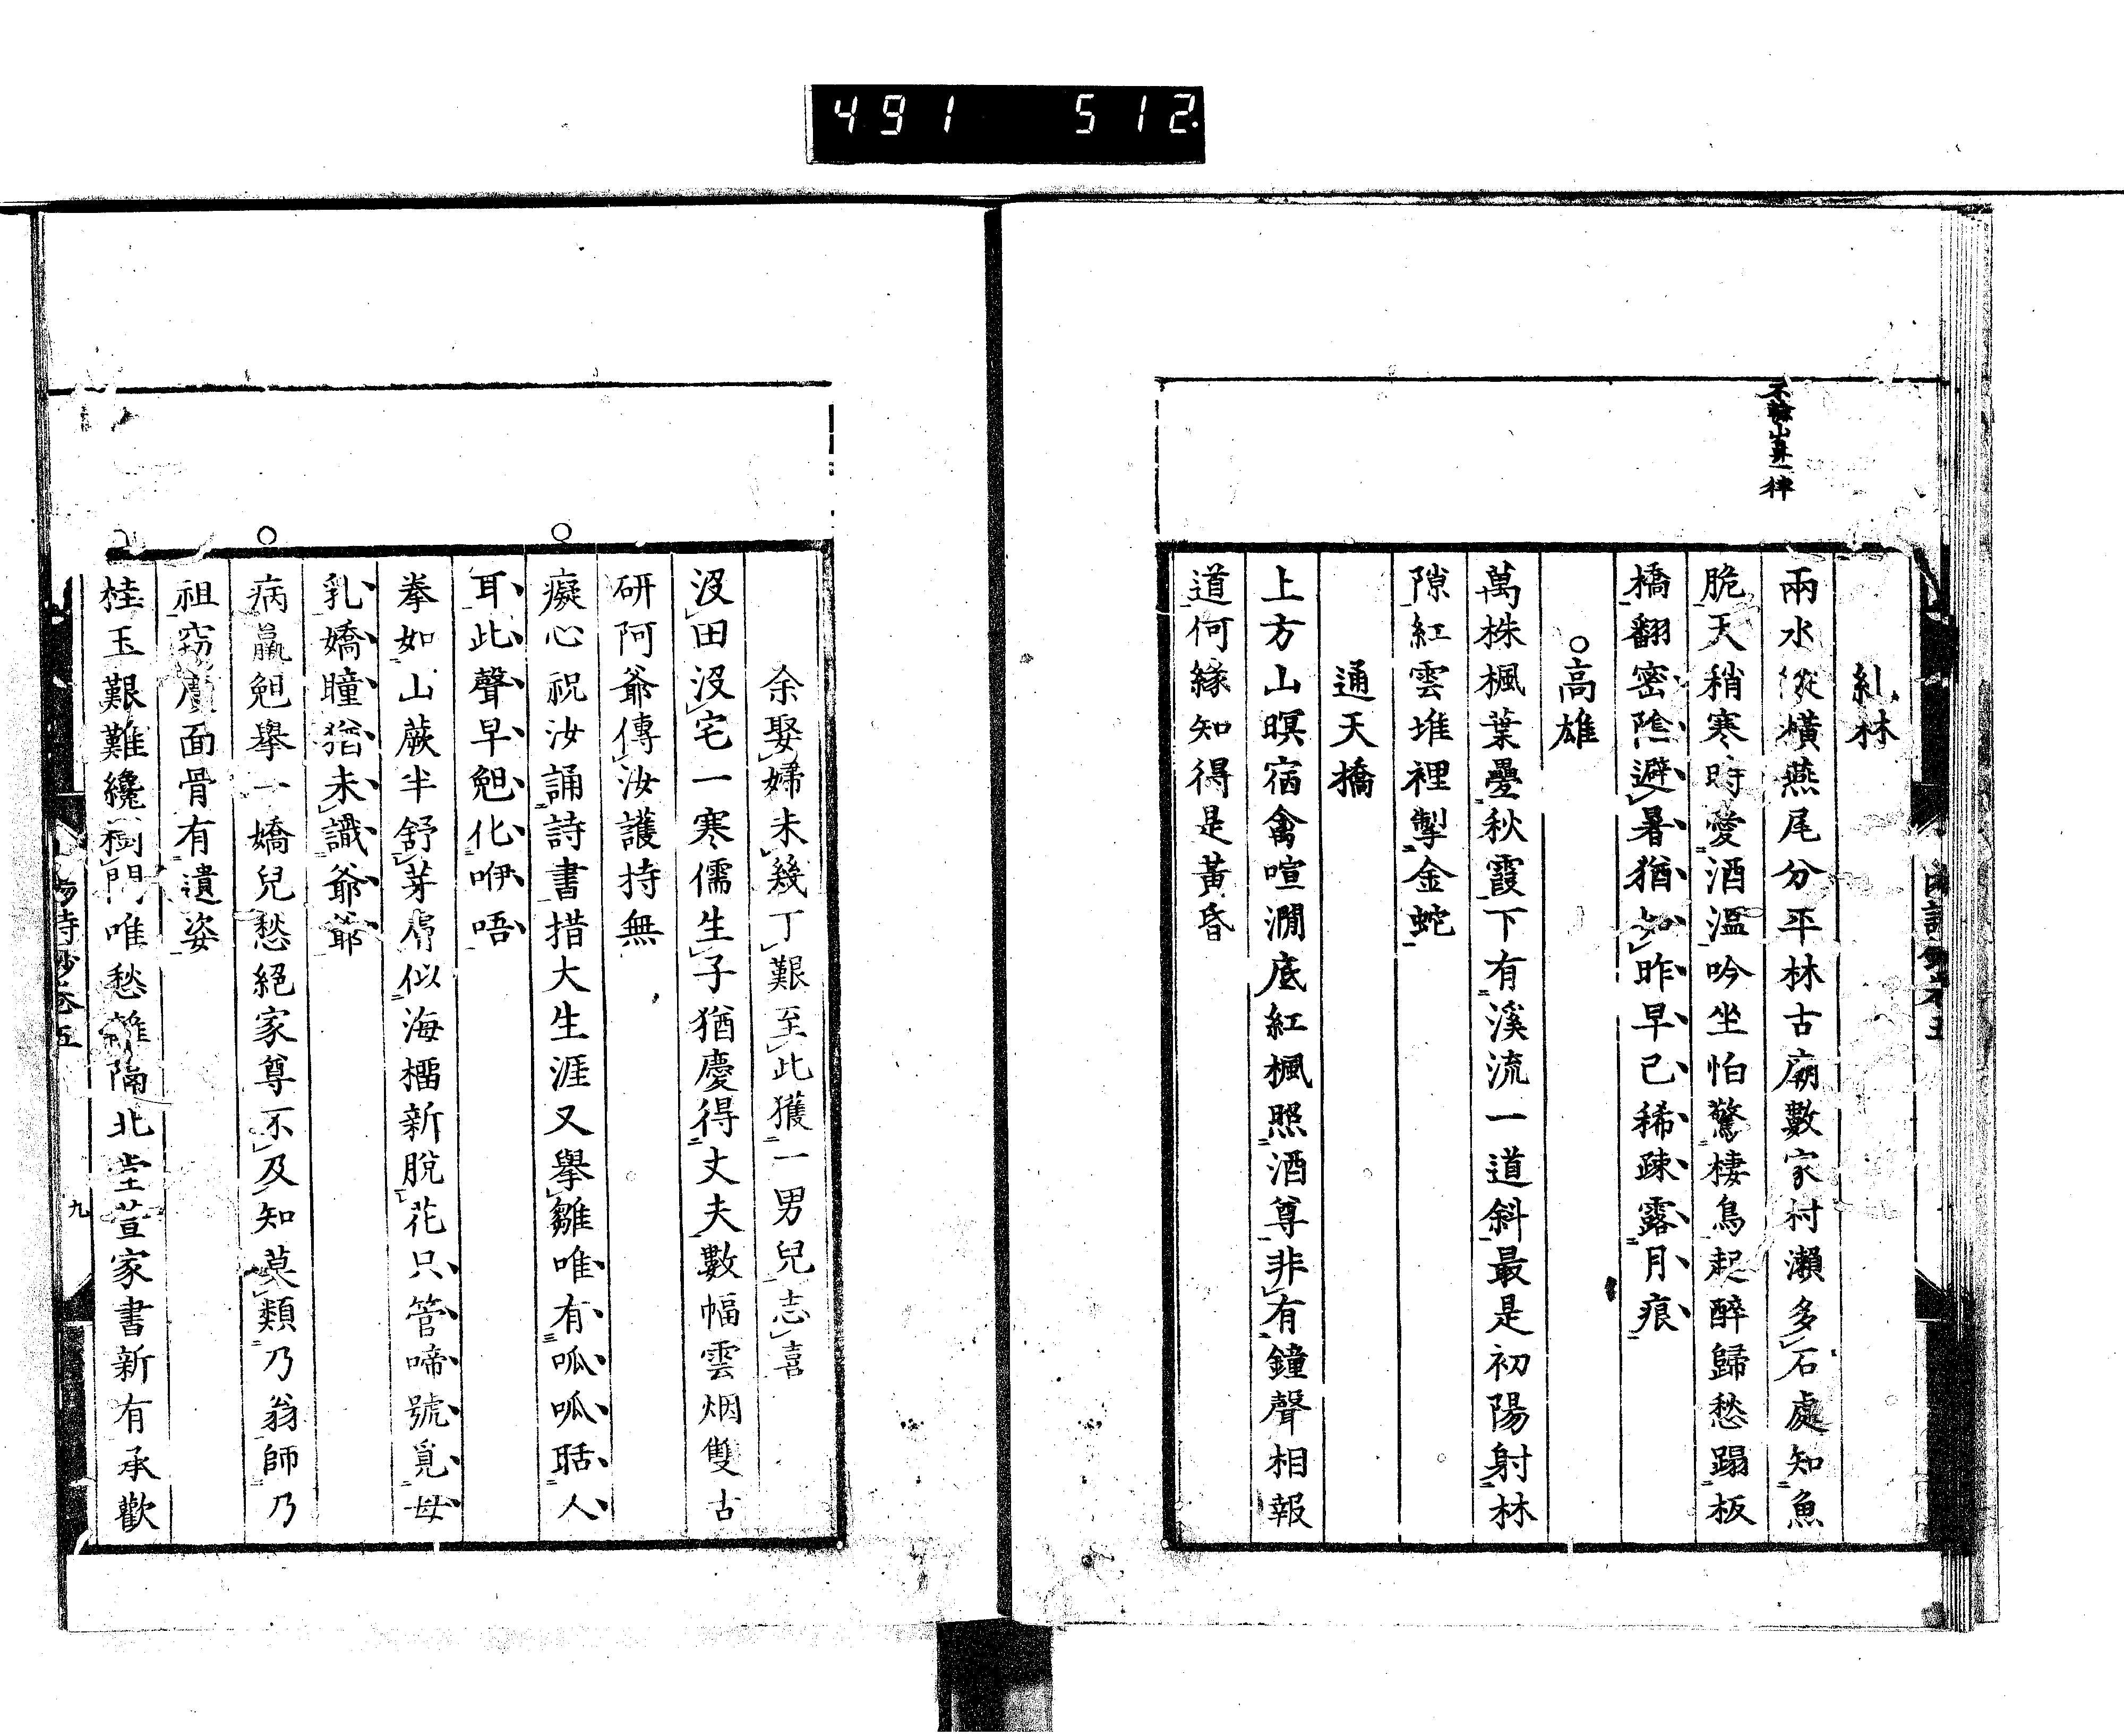 491 512.
不諭山算一律
糺林
兩水縱橫燕尾分平林古廟數家村瀨多石處知魚
脆天稍寒時愛酒溫吟坐怕驚棲鳥起醉歸愁蹋板
橋翻密陰避暑猶如昨早已稀疎露月痕
○高雄
萬株楓葉疊秋霞下有溪流一道斜最是初陽射林
隙紅雲堆裡掣金蛇
通天橋
上方山暝宿禽喧澗底紅楓照酒尊非有鐘聲相報
道何緣知得是黃昏
余娶婦未幾丁艱至此獲一男兒志喜
沒田沒宅一寒儒生子猶慶得丈夫數幅雲烟雙古
研阿爺傳汝護持無
○
癡心祝汝誦詩書措大生涯又舉雛唯有呱呱聒人
耳此聲早兜化咿唔
拳如山蕨半舒芽膚似海榴新脫花只管啼號覓母
乳嬌瞳猶未識爺爺
○
病羸兜舉一嬌兒愁絕家尊不及知莫類乃翁師乃
祖窃 面骨有遺姿
桂玉艱難纔 門唯愁離隔北堂萱家書新有承歡
詩鈔卷五
九